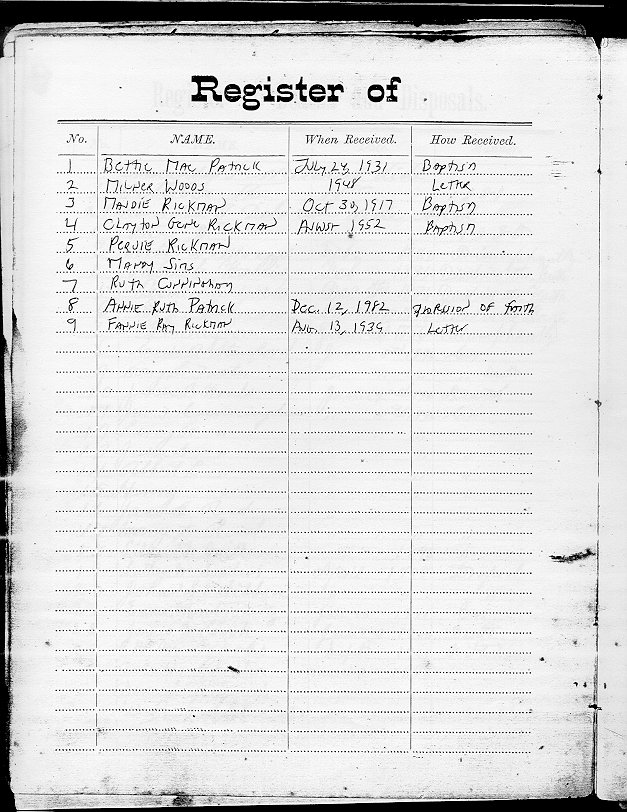 Register of
No. NAME. When Received. How Received.
1 Bettie Mae Patrick July 24, 1931 Baptism
2 Milner Woods 1948 Letter
3 Maudie Rickman Oct 30, 1917 Baptism
4 Clayton Gene Rickman August 1952 Baptism
5 Rickman
6 Mandy Sims
7 Ruth Cunningham
8 Annie Ruth Patrick Dec. 12, 1982 of faith
9 Fannie Ray Rickman Aug. 13, 1939 Letter